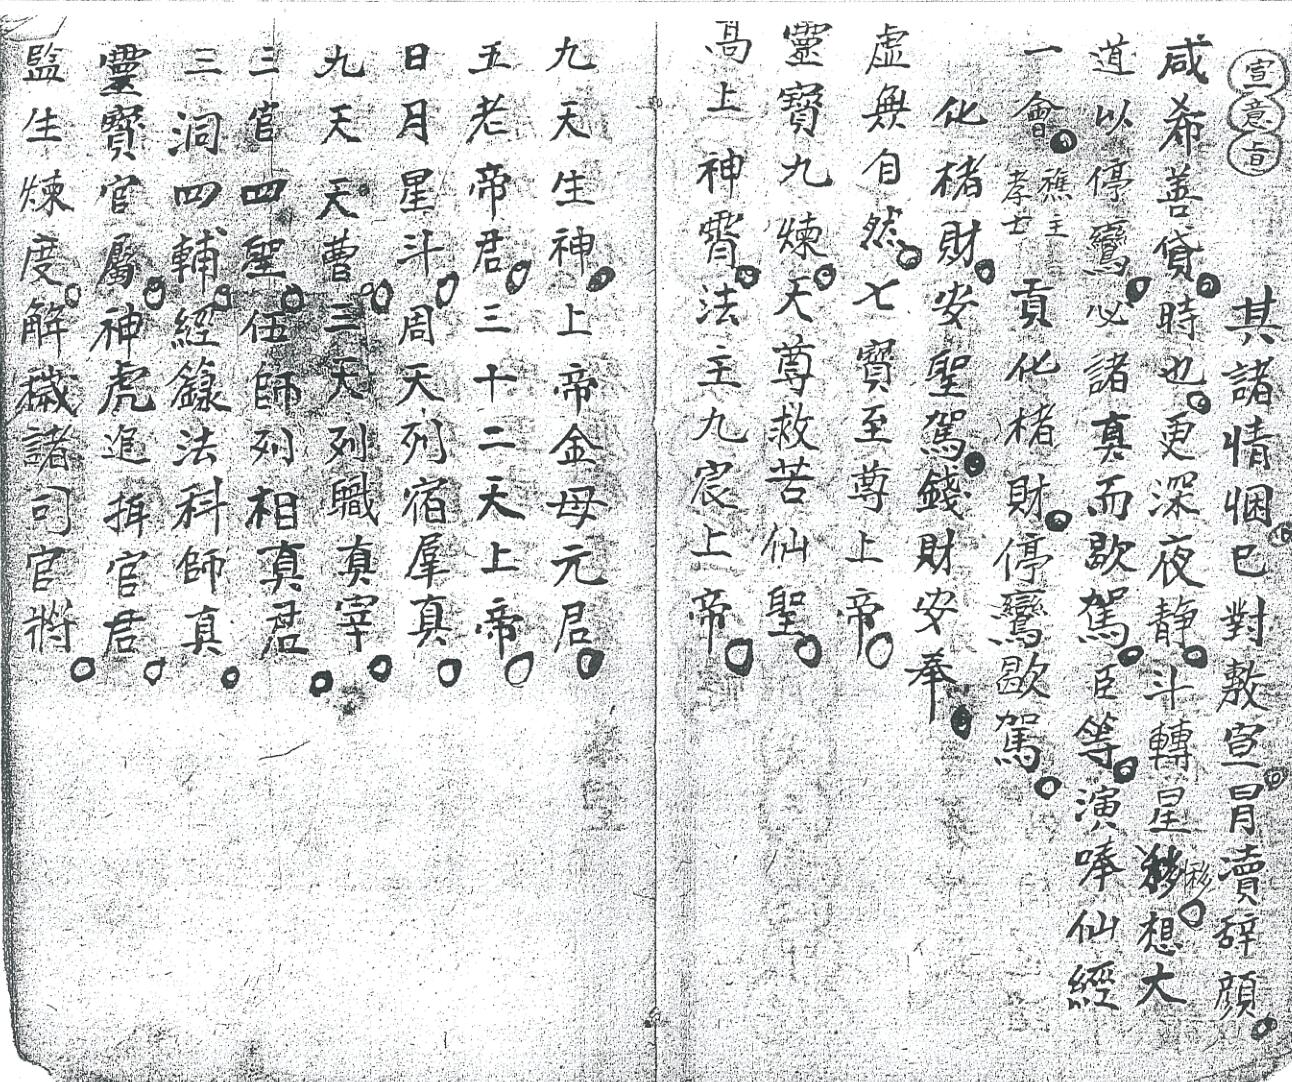 宣意旨
其諸情悃已對敷宣冒瀆辞顔
咸希善貸時也更深夜静斗轉星移想大
道以停鸞必諸真而歇駕臣等演唪仙經
一會醮主孝士貢化楮財停鸞歇駕
化楮財安聖駕錢財安奉
虛無自然七寶至尊上帝
靈寶九煉天尊救苦仙聖
高上神霄法主九宸上帝
九天生神上帝金母元君
五老帝君三十二天上帝
日月星斗周天列宿羣真
九天天曹三天列職真宰
三官四聖伍師列相真君
三洞四輔經籙法科師真
靈寶官屬神虎追攝官君
監生煉度解穢諸司官將